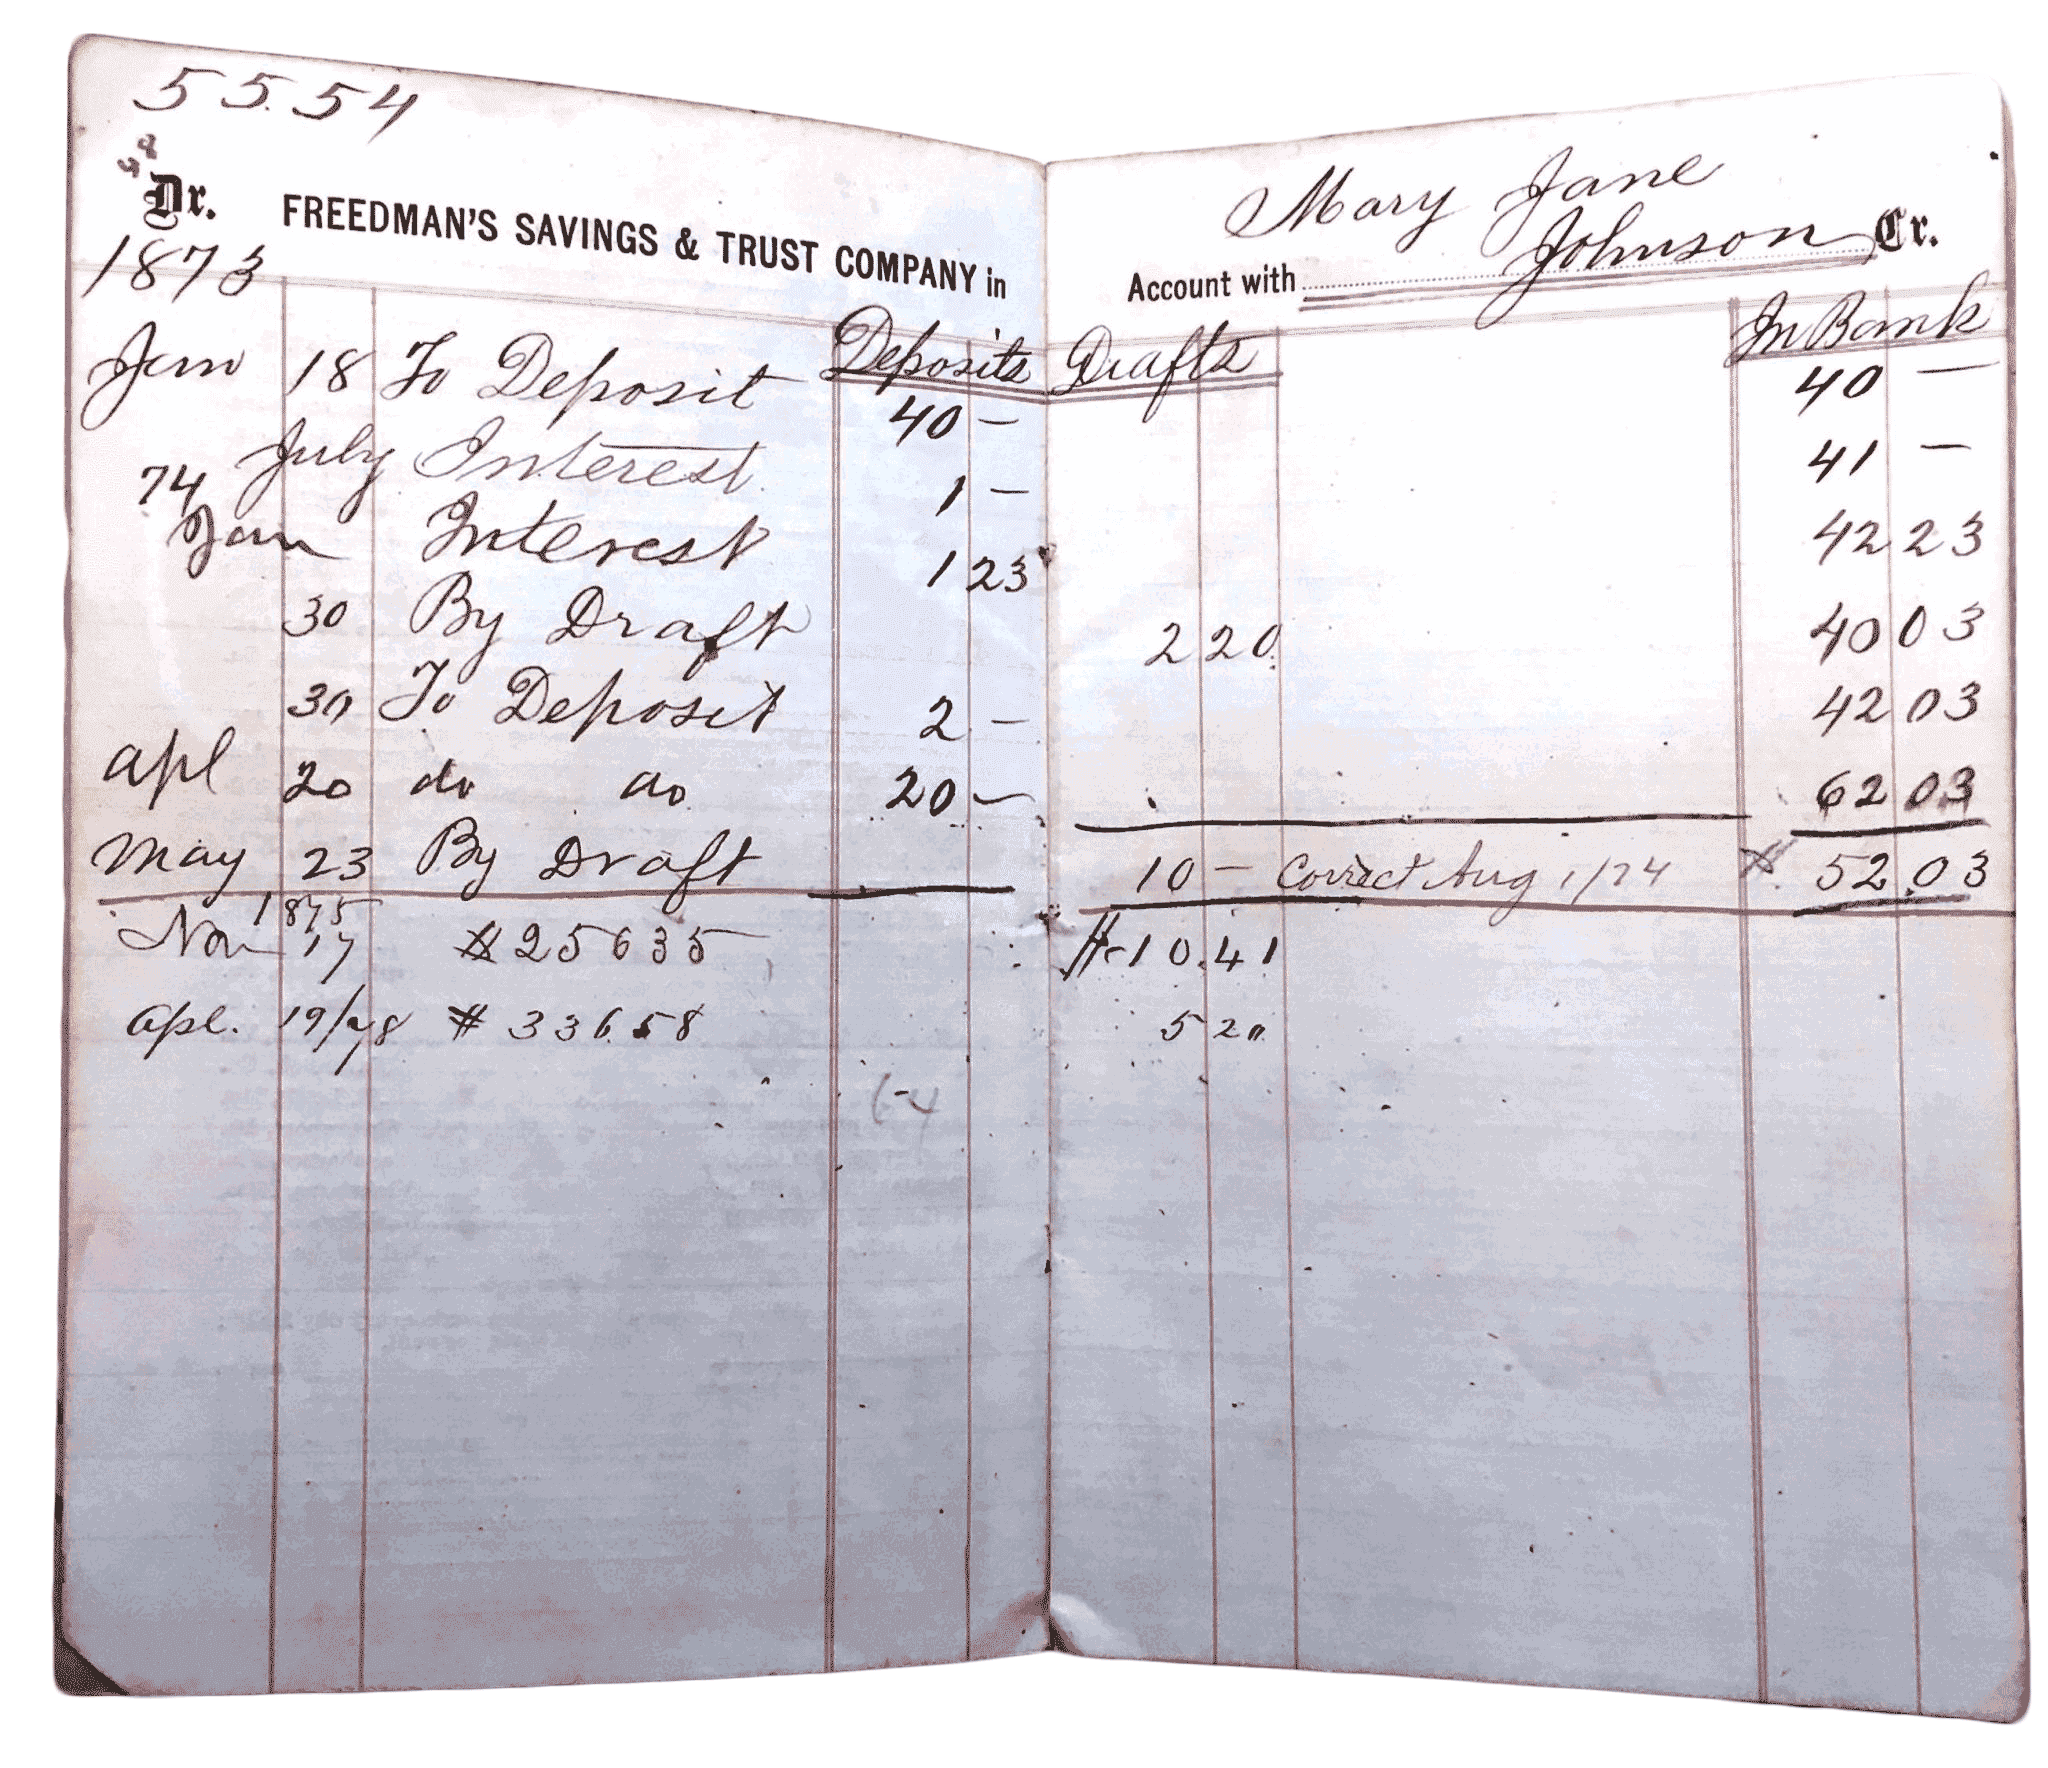 5554
Dr. FREEDMAN'S SAVINGS & TRUST COMPANY in Account with Mary Jane Johnson Cr.
1873 Deposits Drafts In Bank
Jan 18 To Deposit 40 — 40 —
July Interest 1 — 41 —
74
Jan Interest 1 23 42 23
30 By Draft 2 20 40 03
30 To Deposit 2 — 42 03
Apl 20 do do 20 — 62 03
May 23 By Draft 10 — Correct Aug 1/74 52.03
1875
Nov 17 25635 10.41
Apl. 19/78 # 33658 5 20